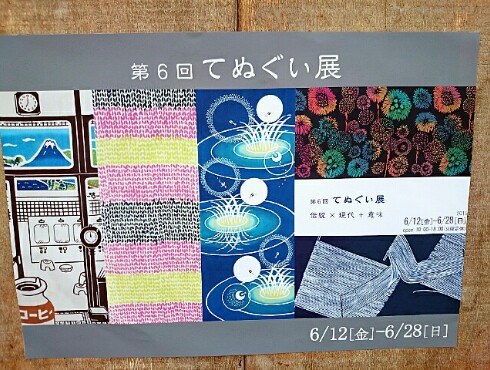 第6回 てぬぐい展
コーヒ
第6回 てぬぐい展
伝統 × 現代 + 意味
6/12[金]–6/28[日]
6/12[金]–6/28[日]